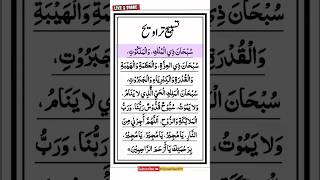 LIKE & SHARE
تسبیح تراویح
سُبْحَانَ ذِي الْمُلْكِ وَالْمَلَكُوْتِ،
سُبْحَانَ ذِي الْعِزَّةِ، وَالْعَظَمَةِ وَالْهَيْبَةِ
وَالْقُدْرَةِ وَالْكِبْرِيَاءِ وَالْجَبَرُوْتِ،
سُبْحَانَ الْمَلِكِ الْحَيِّ الَّذِيْ لَا يَنَامُ،
وَلَا يَمُوْتُ، سُبُّوْحٌ قُدُّوْسٌ رَبُّنَا، وَرَبُّ
الْمَلَائِكَةِ وَالرُّوْحِ، اَللّٰهُمَّ أَجِرْنِيْ مِنَ
النَّارِ، يَا مُجِيْرُ، يَا مُجِيْرُ، يَا مُجِيْرُ،
بِرَحْمَتِكَ يَا أَرْحَمَ الرَّاحِمِيْنَ